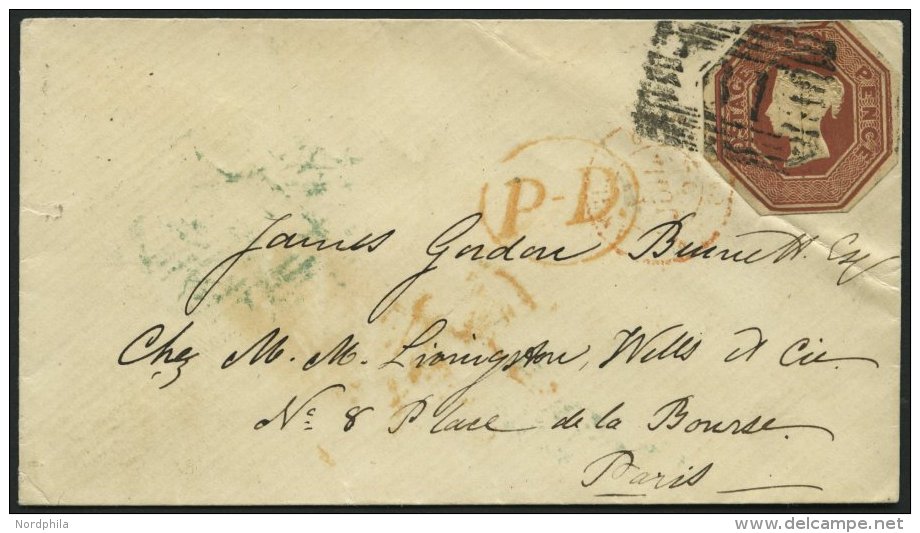 POSTAGE
PENCE
P-D
James Gordon Bennett. Esq
Chez M. M. Livingston, Wells et Cie.
No. 8 Place de la Bourse.
Paris
Nordphila
www.delcampe.net